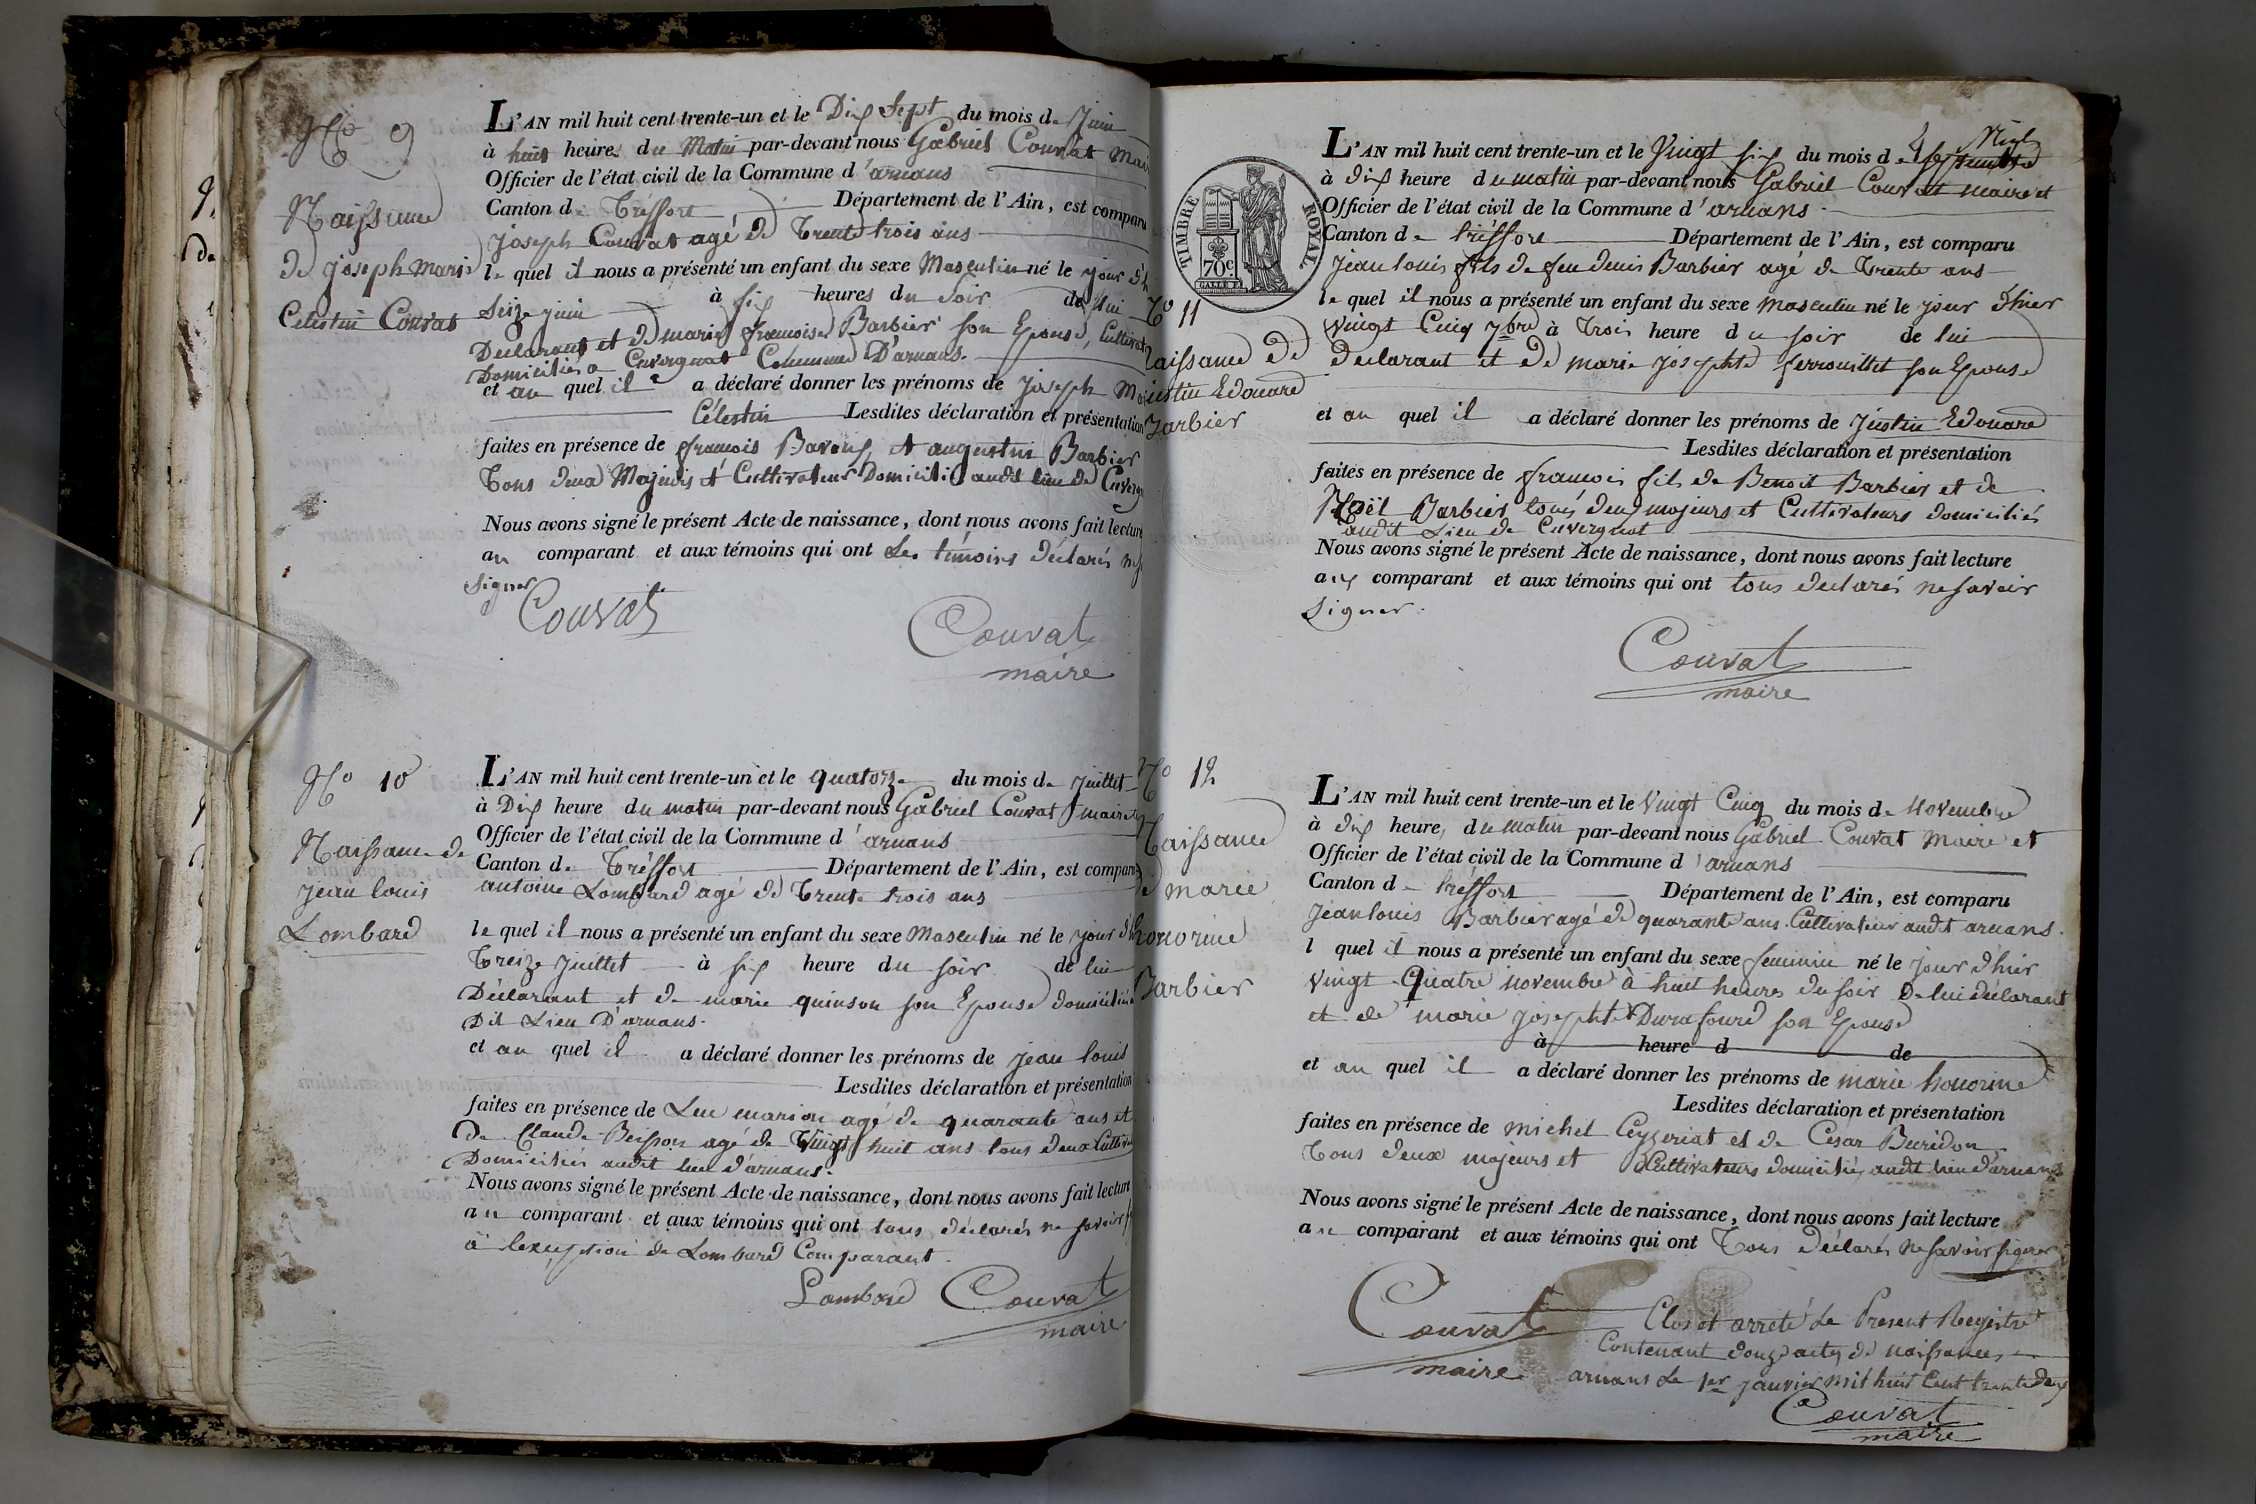 N.o 9
Naissance
de joseph Marie
Celestin Couvat
L'AN mil huit cent trente-un et le Dix Sept du mois de Juin
à huit heures du Matin par-devant nous Gabriel Couvat Mair
Officier de l'état civil de la Commune d'arnans
Canton de Tréffort Département de l'Ain, est comparu
joseph Couvat agé de Trente trois ans
le quel il nous a présenté un enfant du sexe Masculin né le jour d'h
Seize juin à six heures du Soir de lui
Déclarant et de marie francoise Barbier son Epouse, Cultivat
Domiciliés a Cuvergnat Commune D'arnans.
et au quel il a déclaré donner les prénoms de joseph Ma
Célestin Lesdites déclaration et présentation
faites en présence de francois Bavoux et augustin Barbier
Tous deux Majeurs et Cultivateur Domicilié audit lieu de Cuverg
Nous avons signé le présent Acte de naissance, dont nous avons fait lecture
au comparant et aux témoins qui ont Les témoins déclarés ne s
Signer
Couvat
Couvat
maire
N.o 10
Naissance de
jean louis
Lombard
L'AN mil huit cent trente-un et le quatorze du mois de juillet
à Dix heure du matin par-devant nous Gabriel Couvat maire et
Officier de l'état civil de la Commune d'arnans
Canton de Tréffort Département de l'Ain, est comparu
antoine Lombard agé de Trente trois ans
le quel il nous a présenté un enfant du sexe Masculin né le jour d'h
Treize Juillet à six heure du soir de lui
Déclarant et de marie quinson son Epouse domiciliés
Dit Lieu D'arnans.
et au quel il a déclaré donner les prénoms de jean louis
Lesdites déclaration et présentation
faites en présence de Luc marion agé de quarante ans et
de Claude Beisson agé de Vingt huit ans tous deux Cultiva
Domiciliés audit lieu d'arnans.
Nous avons signé le présent Acte de naissance, dont nous avons fait lecture
au comparant et aux témoins qui ont tous déclarés ne savoir s
à l'exception de Lombard Comparant.
Lombard Couvat
maire
TIMBRE ROYAL
70c
N.o 11
aissance de
ustin Edouard
Barbier
L'AN mil huit cent trente-un et le Vingt six du mois de septembre
à dix heure du matin par-devant nous Gabriel Couvat maire et
Officier de l'état civil de la Commune d'arnans
Canton de tréffort Département de l'Ain, est comparu
Jean louis fils de feu denis Barbier agé de Trente ans
le quel il nous a présenté un enfant du sexe masculin né le jour d'hier
vingt Cinq 7bre à Trois heure du soir de lui
declarant et de marie josephte ferrouillet son Epouse
et au quel il a déclaré donner les prénoms de Justin Edouard
Lesdites déclaration et présentation
faites en présence de francois fils de Benoit Barbier et de
Noël Barbier tous deux majeurs et Cultivateurs domiciliés
audit Lieu de Cuvergnat
Nous avons signé le présent Acte de naissance, dont nous avons fait lecture
aux comparant et aux témoins qui ont tous declarés ne savoir
Signer.
Couvat
maire
N.o 12
Naissance
de marie
honorine
Barbier
L'AN mil huit cent trente-un et le Vingt Cinq du mois de Novembre
à dix heure, du Matin par-devant nous Gabriel Couvat Maire et
Officier de l'état civil de la Commune d'arnans
Canton de tréffort Département de l'Ain, est comparu
Jean louis Barbier agé de quarante ans Cultivateur audit arnans.
l quel il nous a présenté un enfant du sexe feminin né le jour d'hier
vingt Quatre novembre à huit heures du soir De lui déclarant
et de marie josephte Durafourd son Epouse
à heure d de
et au quel il a déclaré donner les prénoms de marie honorine
Lesdites déclaration et présentation
faites en présence de michel Ceyzeriat et de César Buridon
Tous deux majeurs et Cultivateurs domiciliés audit lieu d'arnans
Nous avons signé le présent Acte de naissance, dont nous avons fait lecture
au comparant et aux témoins qui ont Tous déclarés ne savoir signer
Couvat
maire
Clos et arreté Le Present Registre
Contenant douze actes de naissances
arnans Le 1er janvier mil huit Cent trente deux
Couvat
maire